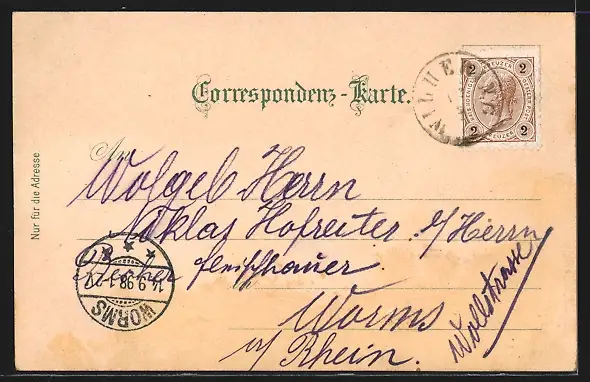 Correspondenz-Karte.
WILHE
2 KREUZER 2
2 2
Nur für die Adresse
An
Wolgeb Herrn
Niklas Hofreiter b/Herrn
fleischhauer
14.9.98.1-2
WORMS
Worms
a/Rhein.
Wollstrasse